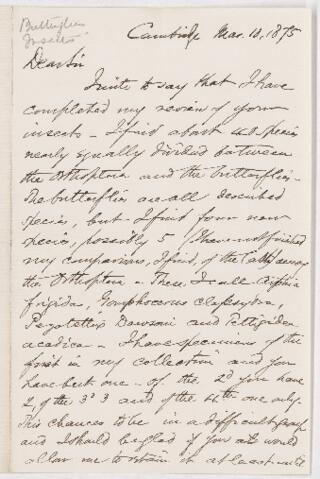 Butterflies
Insects
Cambridge Mar. 10, 1875
Dear Sir
I write to say that I have
completed my review of your
insects - I find about 40 species
nearly equally divided between
the Orthoptera and the butterflies -
The butterflies are all described
species, but I find four new
species, possibly 5 (I have not finished
my comparisons, I find, of the 5th) among
the Orthoptera - These I call
frigida, Gomphocerus clepsydra,
Pezotettix Dawsoni and Tettigidea
acadica - I have specimens of the
first in my collection and you
have but one - of the 2d you have
2, of the 3d 3 and of the 4th one only.
This chances to be in a difficult group
and I should be glad if you would
allow me to retain it at least until